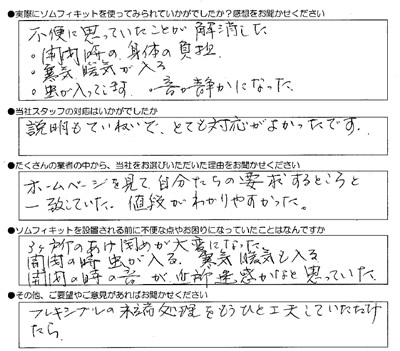 ●実際にソムフィキットを使ってみられていかがでしたか?感想をお聞かせください
不便に思っていたことが解消した
・開閉時の身体の負担
・寒気暖気が入る
・虫が入ってきます ・音が静かになった。
●当社スタッフの対応はいかがでしたか
説明もていねいで、とても対応がよかったです。
●たくさんの業者の中から、当社をお選びいただいた理由をお聞かせください
ホームページを見て、自分たちの要求するところと
一致していた。値段がわかりやすかった。
●ソムフィキットを設置される前に不便な点やお困りになっていたことはなんですか
3ヶ所のあけ閉めが大変になった。
開閉の時虫が入る。寒気暖気も入る
開閉の時の音が近所迷惑かなと思っていた。
●その他、ご要望やご意見があればお聞かせください
フレキシブルの末端処理をもうひと工夫していただけ
たら